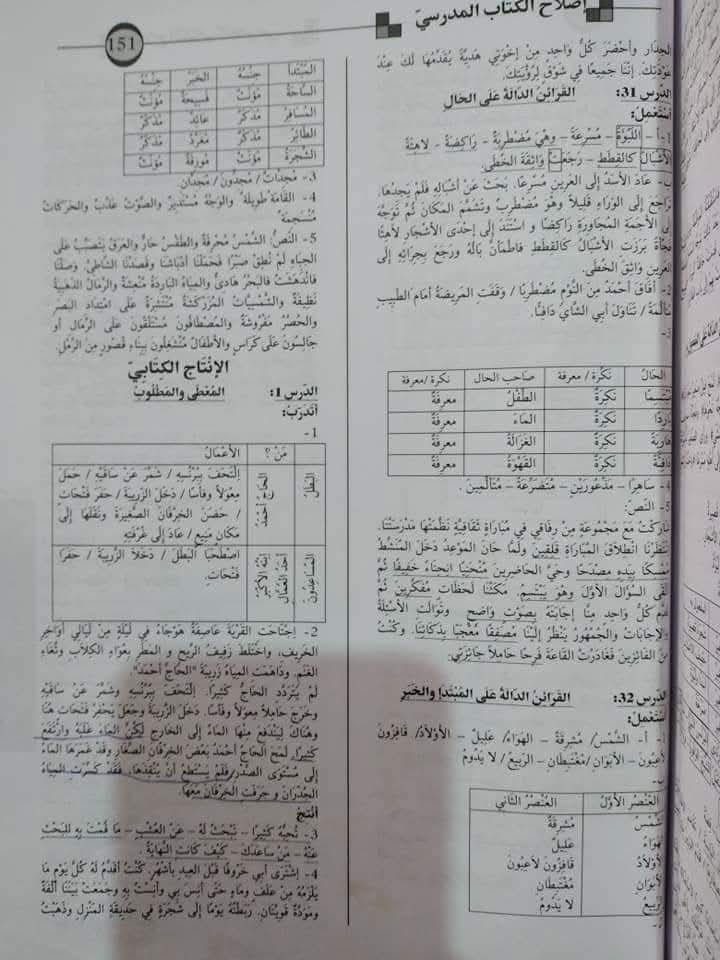 إصلاح الكتاب المدرسيّ
151
الجدار وأحضر كلّ واحد من إخوتي هديّة يقدّمها لك عند
عودتك. إنّنا جميعا في شوق لرؤيتك.
الدّرس 31: القرائن الدّالّة على الحال
أستعمل:
1- أ- اللّبؤة – مسرعة – وهي مضطربة – راكضة – لاهثة
الأشبال كالقطط – رجعت واثقة الخطى.
ب- عاد الأسد إلى العرين مسرعا. بحث عن أشباله فلم يجدها.
تراجع إلى الوراء قليلا وهو مضطرب وتشمّم المكان ثمّ توجّه
إلى الأجمة المجاورة راكضا و استند إلى إحدى الأشجار لاهثا
فجأة برزت الأشبال كالقطط فاطمأنّ باله ورجع بجرائه إلى
العرين واثق الخطى.
2- أفاق أحمد من النّوم مضطربا / وقفت المريضة أمام الطّبيب
متألّمة / تناول أبي الشّاي دافئا.
3-
الحال | نكرة / معرفة | صاحب الحال | نكرة/معرفة
مبتسما | نكرة | الطّفل | معرفة
باردا | نكرة | الماء | معرفة
هاربة | نكرة | الغزالة | معرفة
دافئة | نكرة | القهوة | معرفة
4- ساهرا – مذعورين – متضرّعة – متألّمين.
5- النّصّ:
شاركت مع مجموعة من رفاقي في مباراة ثقافيّة نظّمتها مدرستنا.
انتظرنا انطلاق المباراة قلقين ولمّا حان الموعد دخل المنشّط
ممسكا بيده مصدحا وحيّ الحاضرين منحنيا انحناء خفيفا ثمّ
ألقى السّؤال الأوّل وهو يبتسم. مكثنا لحظات مفكّرين ثمّ
قدّم كلّ واحد منّا إجابته بصوت واضح وتوالت الأسئلة
والإجابات والجمهور ينظر إلينا مصفّقا معجبا بذكائنا. وكنت
من الفائزين فغادرت القاعة فرحا حاملا جائزتي.
الدّرس 32: القرائن الدّالّة على المبتدإ والخبر
أستعمل:
1- أ- الشّمس/ مشرقة – الهواء/ عليل – الأولاد/ قافزون
لاعبون – الأبوان /مغتبطان – الرّبيع/ لا يدوم
ب-
العنصر الأوّل | العنصر الثاني
الشّمس | مشرقة
الهواء | عليل
الأولاد | قافزون لاعبون
الأبوان | مغتبطان
الرّبيع | لا يدوم
المبتدأ | جنسه | الخبر | جنسه
السّاحة | مؤنّث | فسيحة | مؤنّث
المسافر | مذكّر | عائد | مذكّر
الطّائر | مذكّر | مغرّد | مذكّر
الشّجرة | مؤنّث | مورقة | مؤنّث
3- مجدّات / مجدّون / مجدّان.
4- القامة طويلة والوجه مستدير والصّوت عذب والحركات
منسجمة
5- النّصّ: الشّمس محرقة والطّقس حارّ والعرق يتصبّب على
الجباه لم نطق صبرا فحملنا أدباشنا وقصدنا الشّاطئ. وصلنا
فاندهشت فالبحر هادئ والمياه الباردة منعشة والرّمال الذّهبيّة
نظيفة والشّمسيّات المزركشة منتشرة على امتداد البصر
والحصر مفروشة والمصطافون مستلقون على الرّمال أو
جالسون على كراس والأطفال منشغلون ببناء قصور من الرّمل.
الإنتاج الكتابيّ
الدّرس 1: المعطى والمطلوب
أتدرّب:
1-
من ؟ | الأعمال
البطل | الحاجّ أحمد | التحف ببرنسه / شمّر عن ساقيه / حمل
معولا وفأسا / دخل الزّريبة / حفر فتحات
/ حضن الخرفان الصّغيرة ونقلها إلى
مكان منيع / عاد إلى غرفته
المساعدون | ابنه الأكبر | أحد العمّال | اصطحبا البطل / دخلا الزّريبة / حفرا
فتحات.
2- اجتاحت القرية عاصفة هوجاء في ليلة من ليالي أواخر
الخريف، واختلط زفيف الرّيح و المطر بعواء الكلاب وثغاء
الغنم. وداهمت المياه زريبة "الحاجّ أحمد".
لم يتردّد الحاجّ كثيرا. التحف ببرنسه وشمّر عن ساقيه
وخرج حاملا معولا وفأسا. دخل الزّريبة وجعل يحفر فتحات هنا
وهناك ليندفع منها الماء إلى الخارج لكنّ الماء غلبه وارتفع
كثيرا. لمح الحاجّ أحمد بعض الخرفان الصّغار وقد غمرها الماء
إلى مستوى الصّدر/فلم يستطع أن ينقذها. فقد كسرت المياه
الجدران و جرفت الخرفان معها.
أنتج
3- تحبّه كثيرا – تبحث له – عن العشب – ما قمت به للبحث
عنه – من ساعدك – كيف كانت النّهاية.
4- اشترى أبي خروفا قبل العيد بأشهر. كنت أقدّم له كلّ يوم ما
يلزمه من علف وماء حتّى أنس بي وأنست به وجمعت بيننا ألفة
ومودّة قويّتان. ربطته يوما إلى شجرة في حديقة المنزل وذهبت